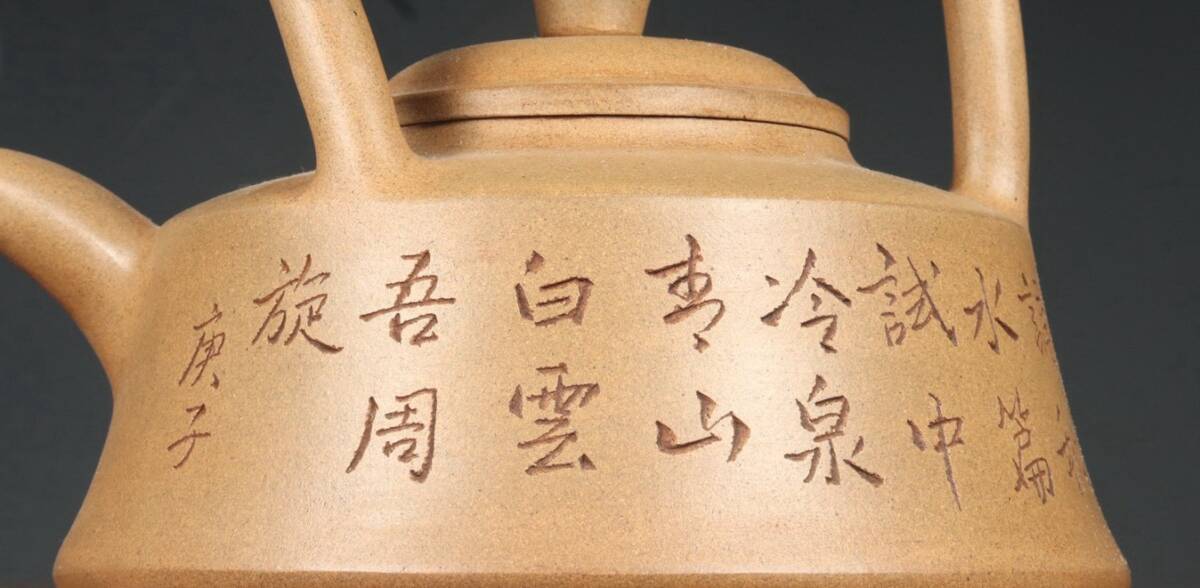 水篇
試中
冷泉
青山
白雲
吾周
旋
庚子